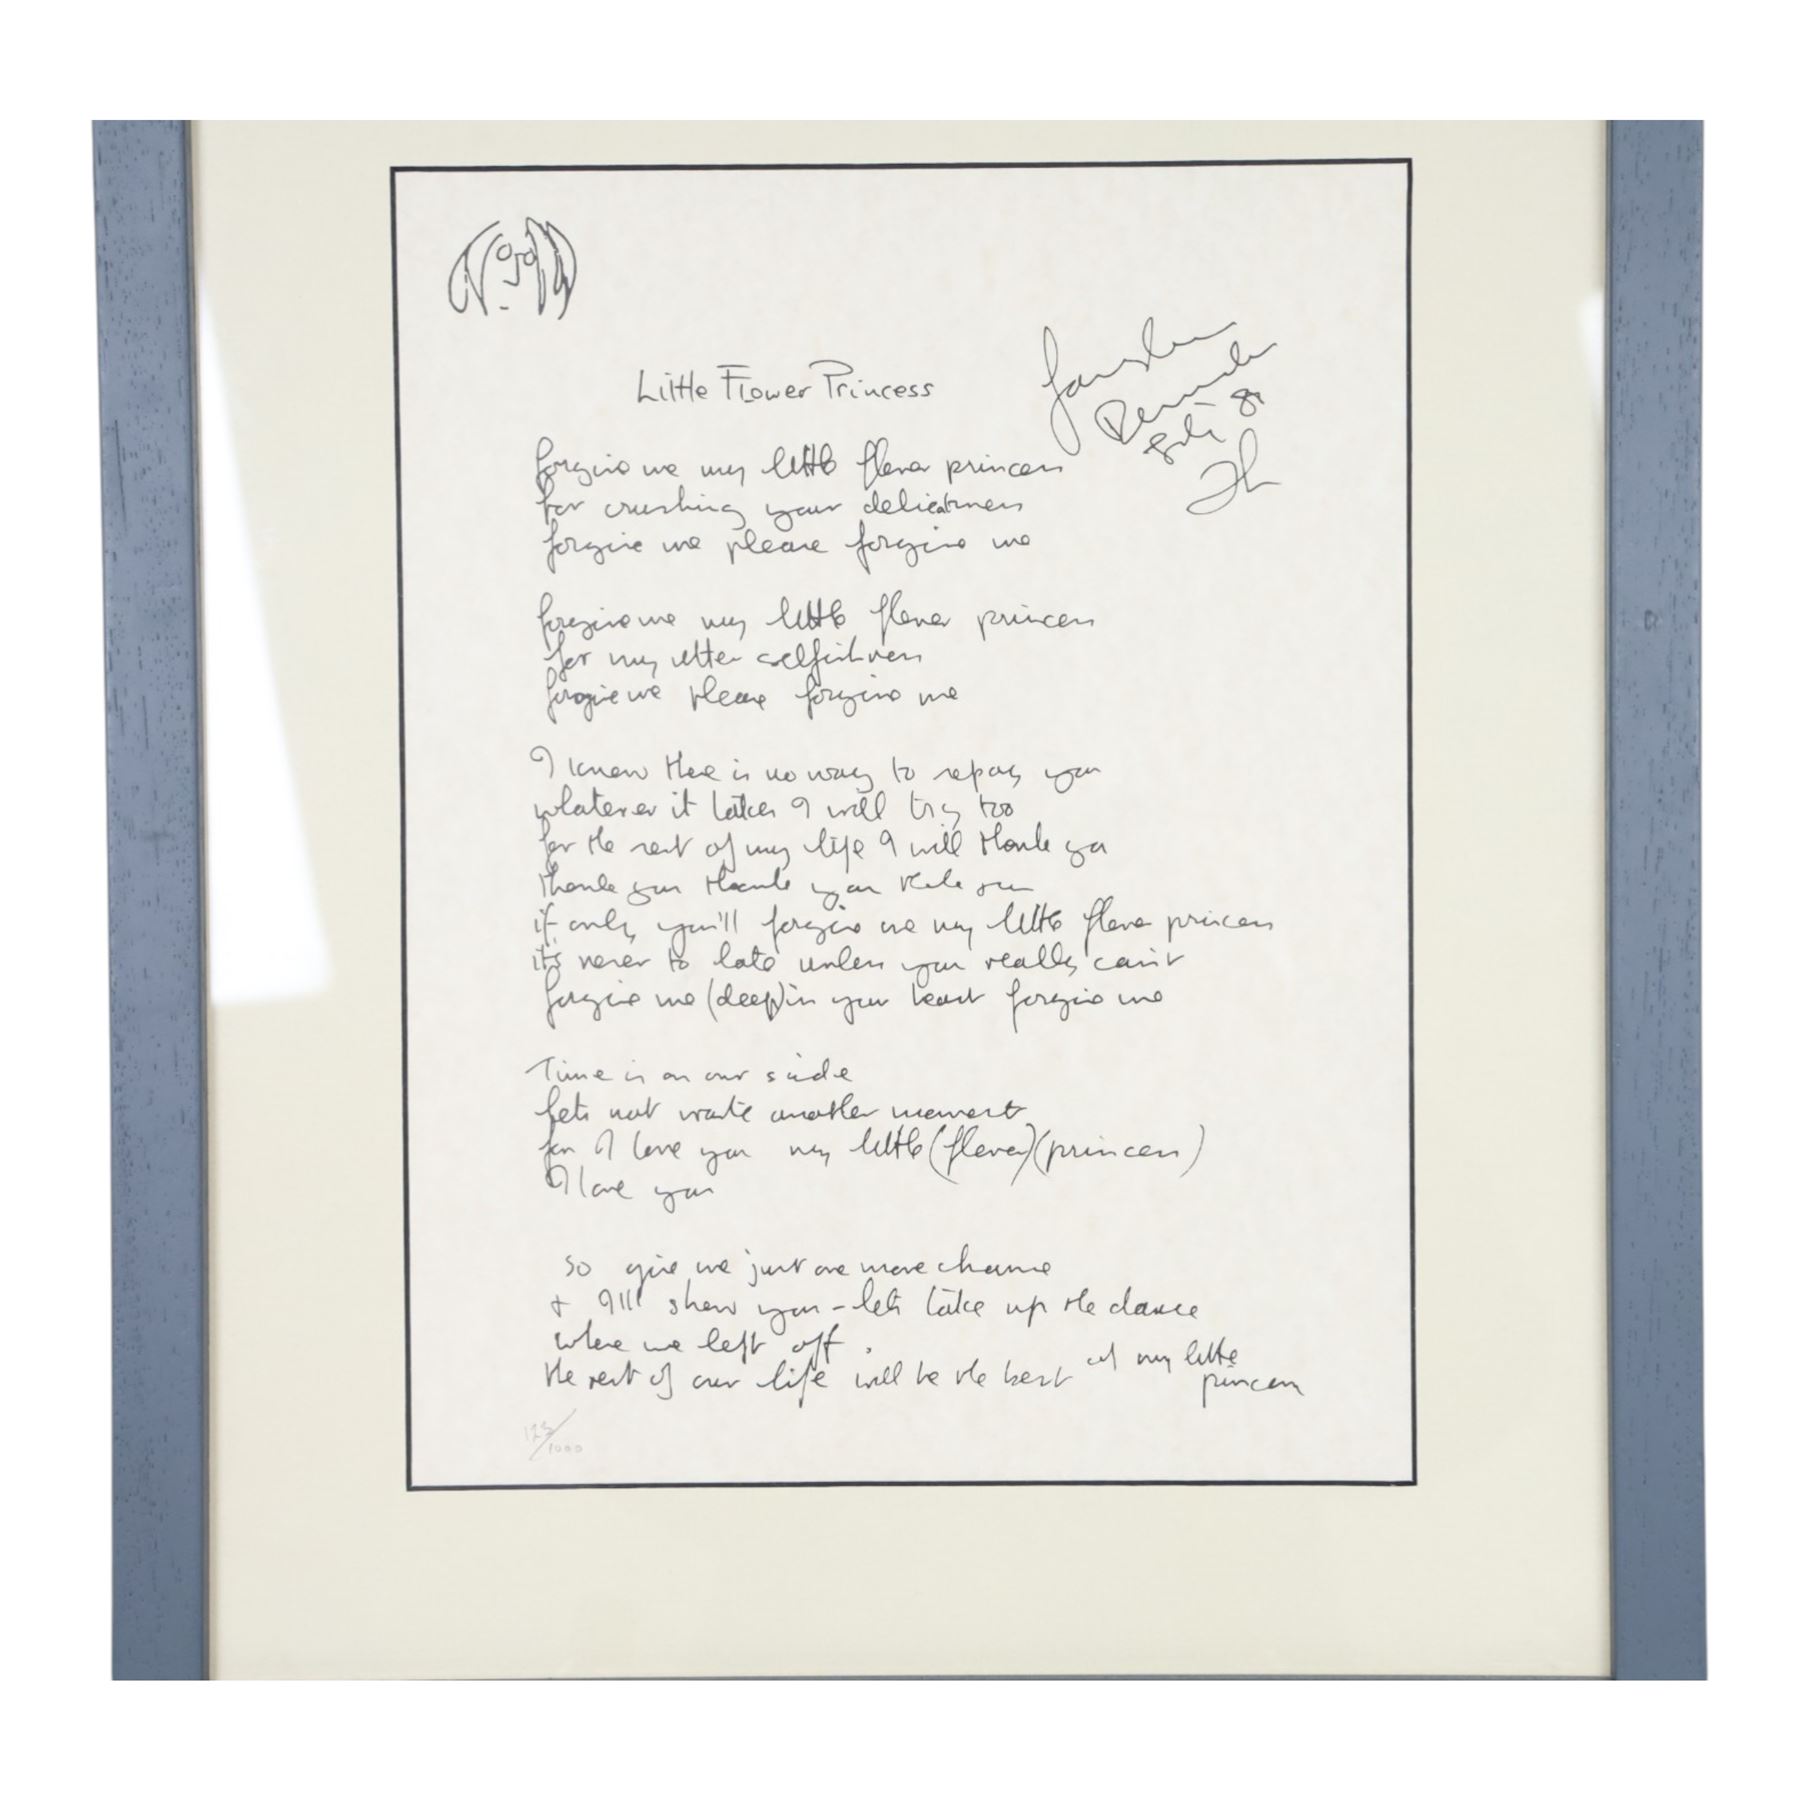 Little Flower Princess
Bermuda
forgive me my little flower princess
for crushing your delicatness
forgive me please forgive me
forgive me my little flower princess
for my utter selfishness
forgive me please forgive me
I know there is no way to repay you
whatever it takes I will try too
for the rest of my life I will thank you
thank you thank you thank you
if only you'll forgive me my little flower princess
its never to late unless you really can't
forgive me (deep) in your heart forgive me
Time is on our side
lets not waste another moment
for I love you my little (flower) (princess)
I love you
so give me just one more chance
+ I'll show you - lets take up the dance
where we left off.
the rest of our life will be the best of my little
princess
123/1000